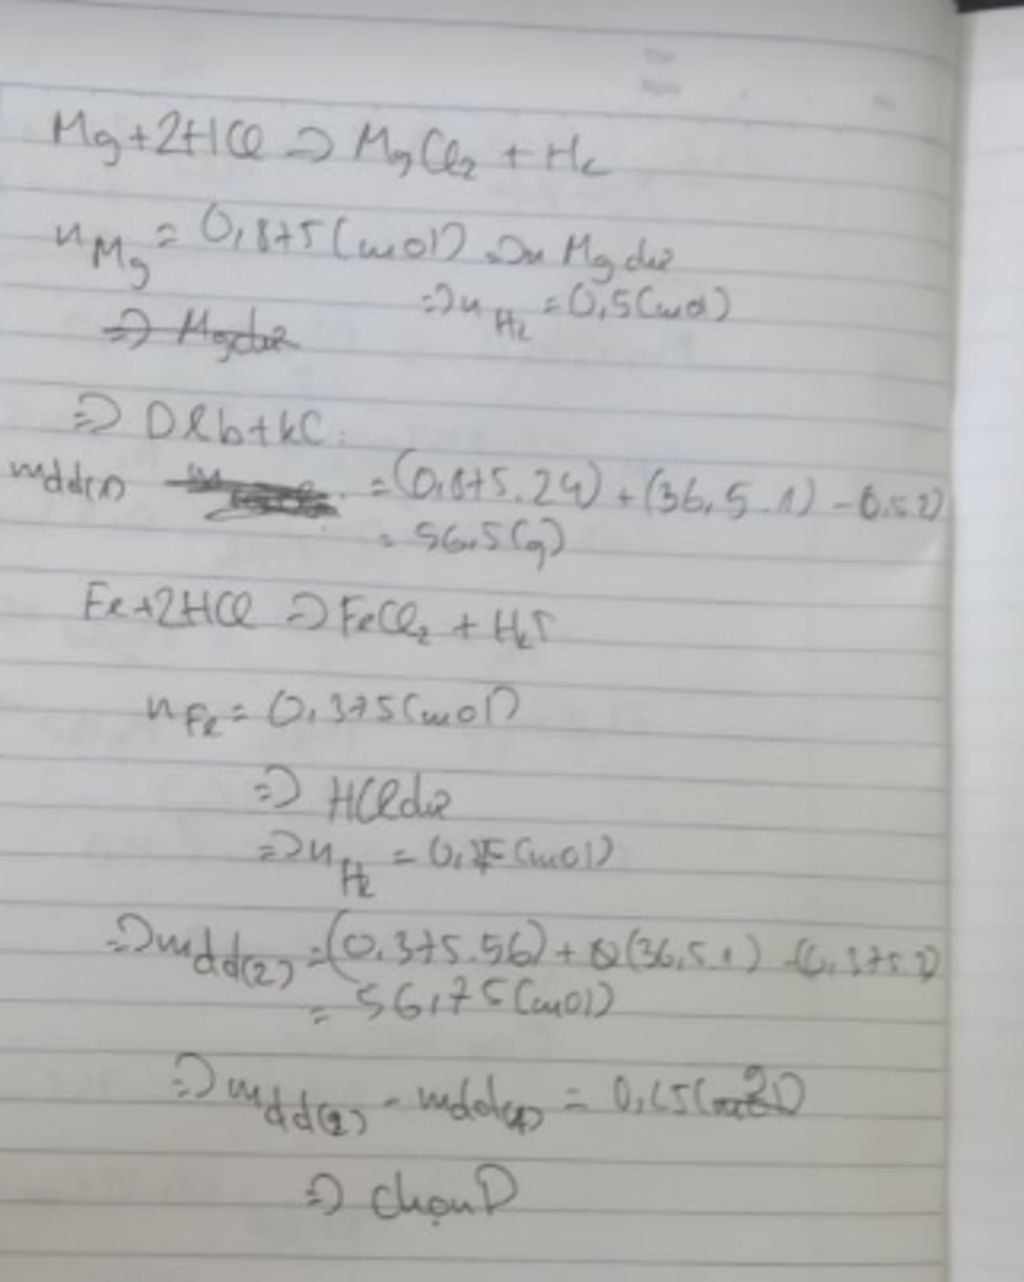 Mg + 2HCl => MgCl2 + H2
nMg = 0,875 (mol) => Mg dư
=> nH2 = 0,5 (mol)
=> Mg dư
=> ĐLbtKL:
mdd(1) = (0,875.24) + (36,5.1) - 0,5.2)
= 56,5 (g)
Fe + 2HCl => FeCl2 + H2↑
nFe = 0,375 (mol)
=> HCl dư
=> nH2 = (mol)
=> mdd(2) = (0,375.56) + (36,5.1) - (0,375.2)
= 56,75 (mol)
=> mdd(2) - mdd(1) = 0,25 (g)
=> chọn D